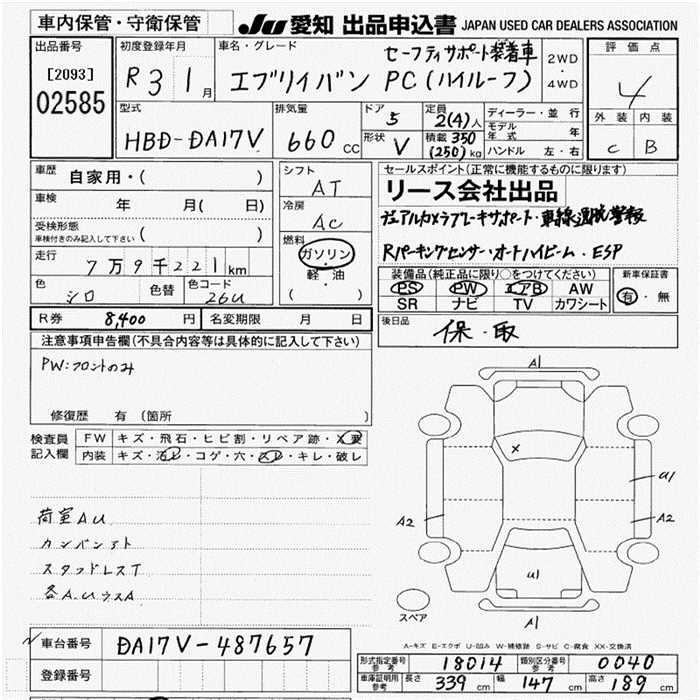 車内保管・守衛保管
JU 愛知 出品申込書 JAPAN USED CAR DEALERS ASSOCIATION
出品番号
[2093]
02585
初度登録年月
R3 1月
車名・グレード
セーフティサポート装着車
エブリイバン PC(ハイルーフ)
2WD
・
4WD
評価点
4
外装 内装
C B
型式
HBD-DA17V
排気量
660cc
ドア 5
形状 V
定員 2(4)人
積載 350
(250)kg
ディーラー・並行
モデル年式 年
ハンドル 左・右
車歴 自家用・( )
車検 年 月( 日)
受検形態
車検付きのみ記入して下さい ( )
走行 7万9千221km
色 シロ 色替 色コード 26U
シフト
AT
冷房
AC
燃料
ガソリン
・
軽・油
( )
セールスポイント(正常に機能するものに限ります)
リース会社出品
デュアルカメラブレーキサポート・車線逸脱警報
Rパーキングセンサー・オートハイビーム・ESP
装備品(純正品に限り○をつけてください)
PS PW エアB AW
SR ナビ TV カワシート
新車保証書
有・無
R券 8,400円 名変期限 月 日
後日品 保・取
注意事項申告欄(不具合内容等は具体的に記入して下さい)
PW:フロントのみ
修復歴 有(箇所 )
検査員記入欄
FW キズ・飛石・ヒビ割・リペア跡・X要
内装 キズ・汚レ・コゲ・穴・スレ・キレ・破レ
荷室AU
カンバンアト
スタッドレスT
各A.UウスA
A1
X
U1
A2
A2
U1
A1
スペア
A-キズ E-エクボ U-凹み W-補修跡 S-サビ C-腐食 XX-交換済
車台番号 DA17V-487657
登録番号
形式指定番号 参考 18014 類別区分番号 参考 0040
車庫証明用 参考 長さ 339cm 幅 147cm 高さ 189cm